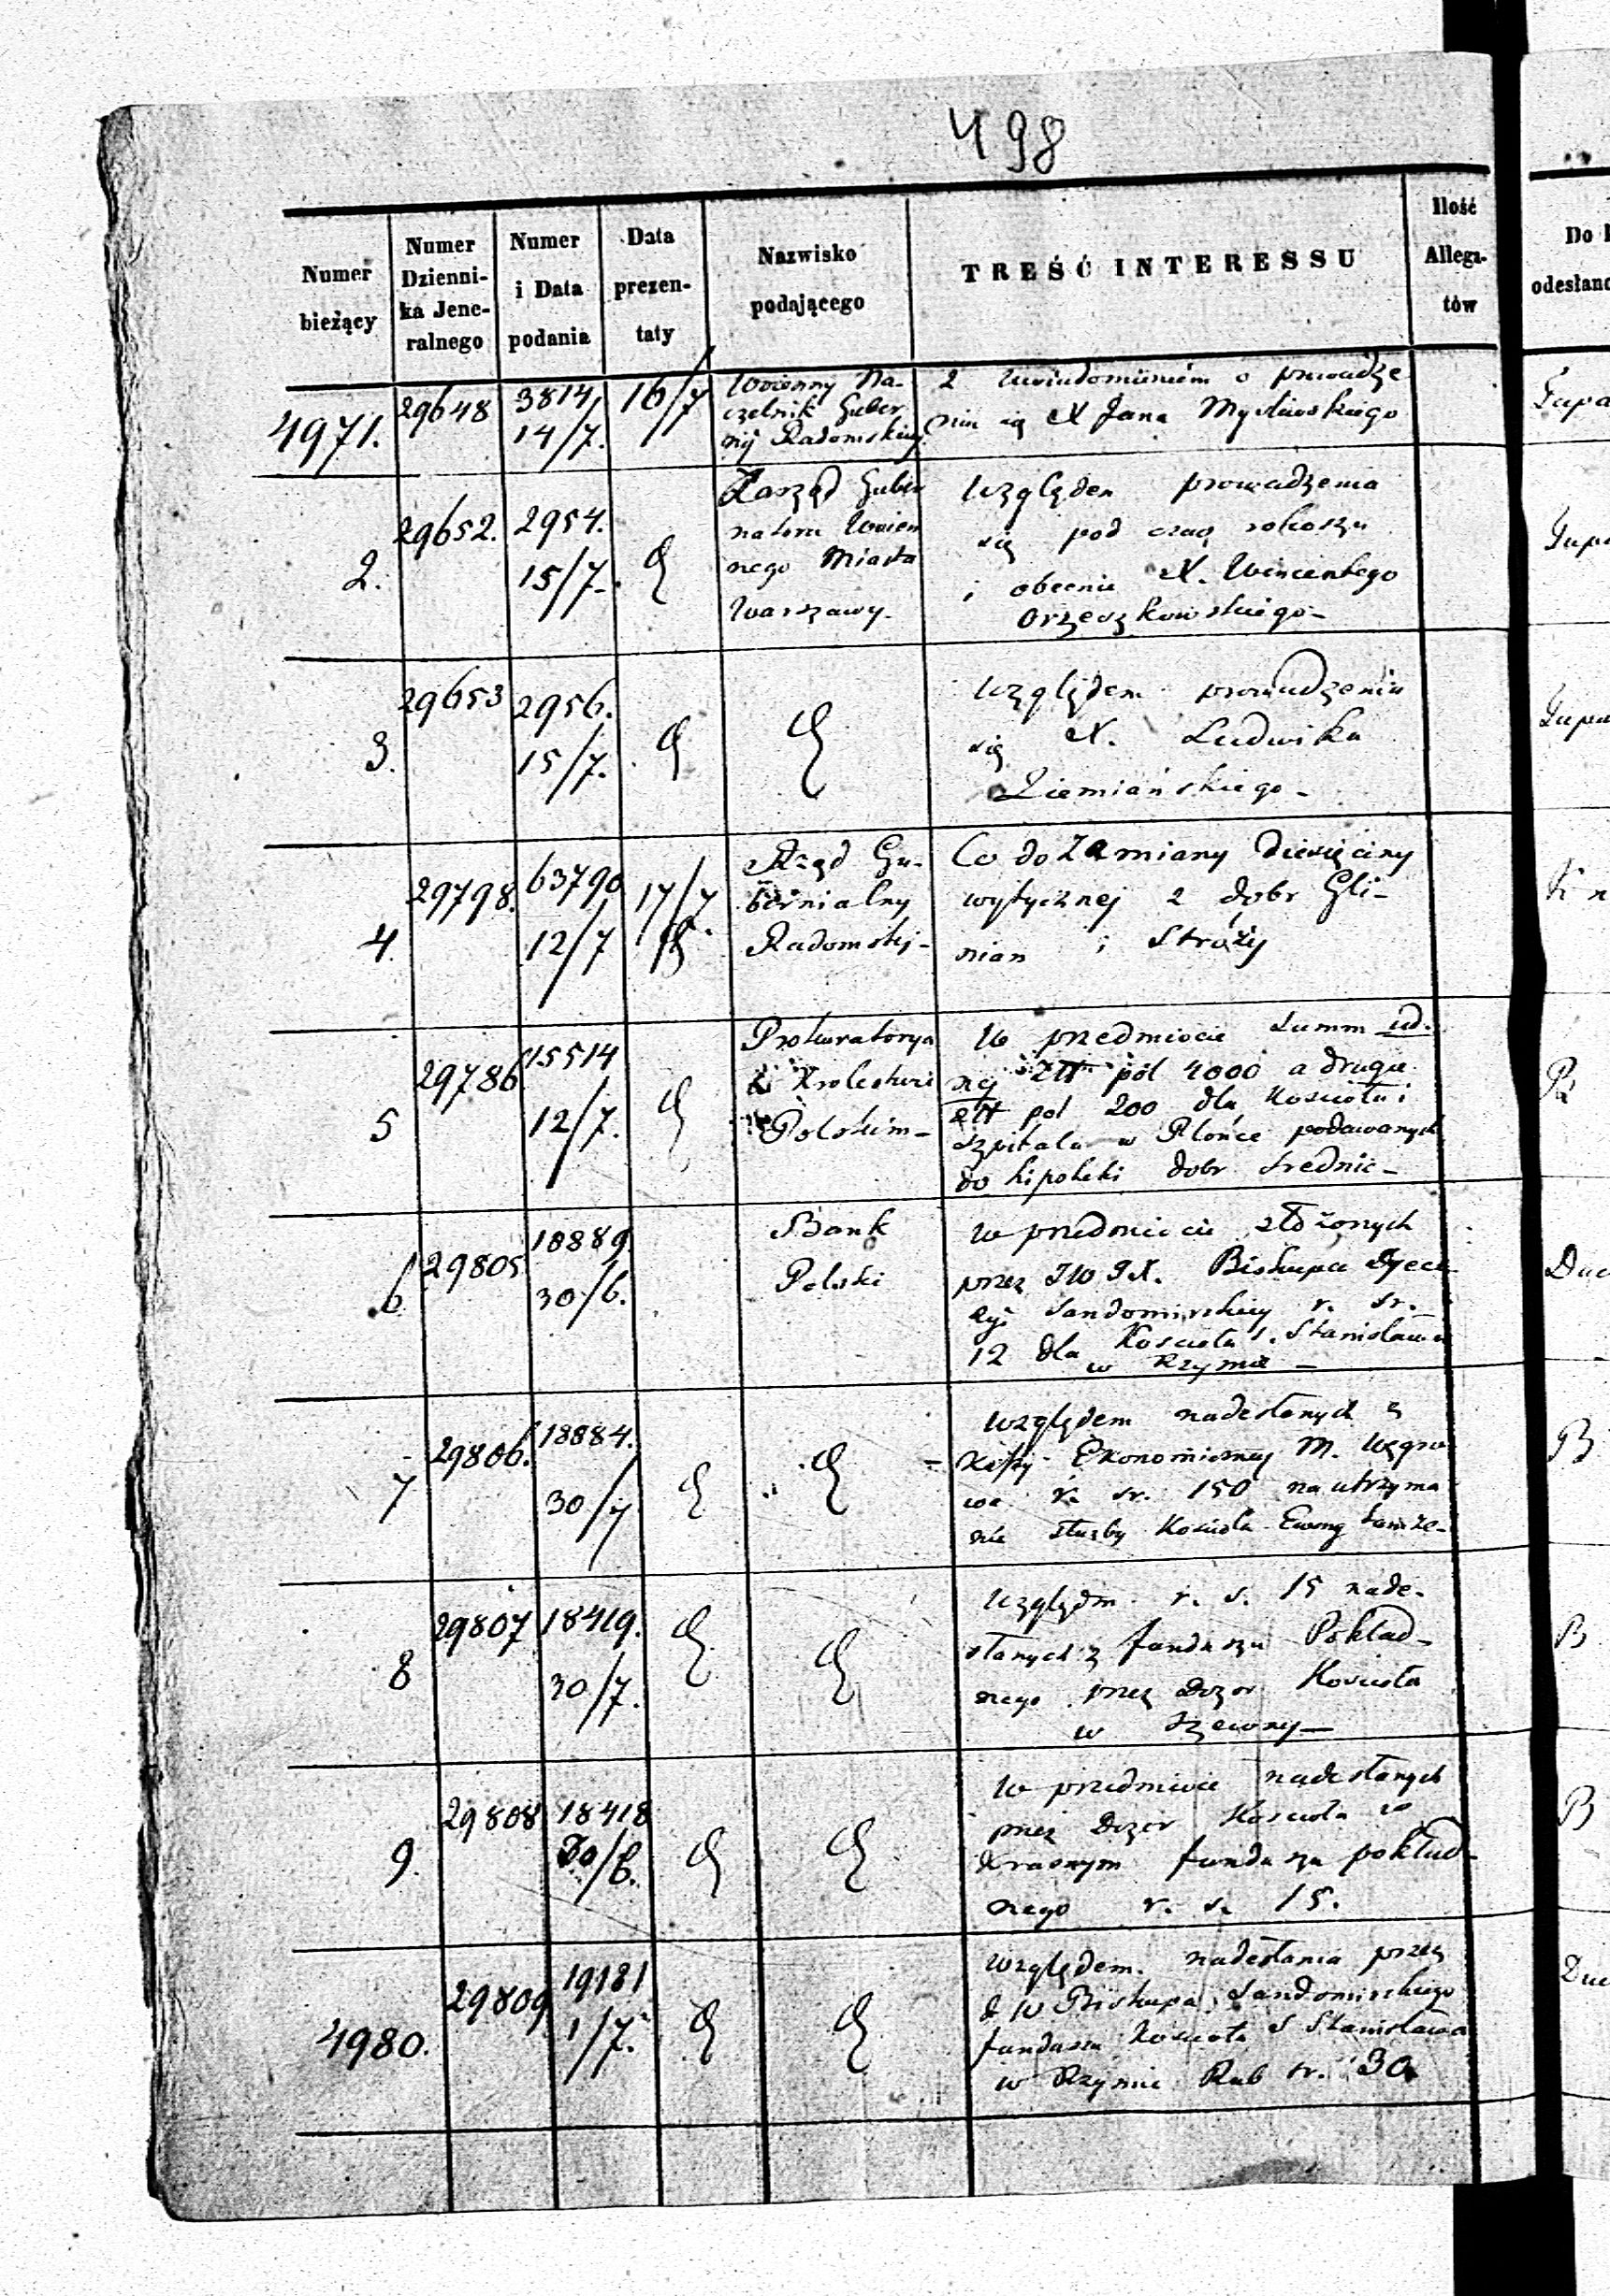 498
Numer bieżący
Numer Dzienni-ka Jene-ralnego
Numer i Data podania
Data prezen-taty
Nazwisko podającego
TREŚĆ INTERESSU
Ilość Allega-tów
Do
4971.
29648
3814
14/7.
16/7
Woienny Na-
czelnik Guber
nij Radomskiej
z uwiadomieniem o prowadze
niu się X Jana Mysliwskiego
2.
29652.
2954.
15/7.
Zarząd Guber
natora Woien
nego Miasta
Warszawy.
Względem prowadzenia
się pod czas rokoszu
i obecnie X. Wincentego
Orzeszkowskiego-
3.
29653
2956.
15/7.
Względem prowadzenia
się X. Ludwika
Ziemiańskiego-
4.
29798.
63790
12/7
17/7
Rząd Gu-
bernialny
Radomskj-
Co do Zamiany dziesięciny
wytycznej z dobr Gli-
nian i Stroży
5
29786
15514
12/7.
Prokuratorya
w Krolestwie
Polskim-
W przedmiocie Summ
złt pol 4000 a drugie
złt pol 200 dla Kosciołu i
Szpitala w Płońce podawanych
do hipoteki dobr Srednic-
6.
29805
18889
30/6.
Bank
Polski
W przedmiocie złożonych
przez JWJX. Biskupa Dyece
zyi Sandomirskiey r. sr.
12 dla Koscioła S. Stanisława
w Rzymie-
7
29806.
18884.
30/7
Względem nadesłanych z
Kassy Ekonomiczney M. Węgro
wa r. sr. 150 na utrzyma
nie służby Koscioła Ewang tamże-
8
29807
18419.
30/7.
Względm r. s. 15 nade-
słanych z funduszu Pokład-
nego przez Dozor Koscioła
w Szewny-
9.
29808
18418
30/6.
W przedmiocie nadesłanych
przez Dozor Koscioła w
Krasnym funduszu pokład-
nego r. s. 15.
4980.
29809
19181
1/7.
Względem nadesłania przez
J W Biskupa Sandomirskiego
funduszu Koscioła S Stanisława
w Rzymie Rub sr. 30